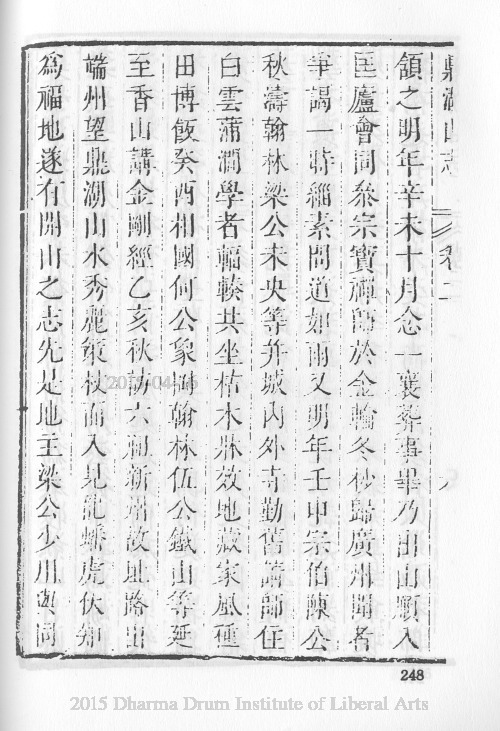 鼎湖山志 卷二 八
頷之明年辛未十月念一襄葬事畢乃出山順入
匡廬會同叅宗寶禪師於金輪冬杪歸廣州聞者
爭謁一時緇素問道如雨又明年壬申宗伯陳公
秋濤翰林梁公未央等并城內外寺勤舊請師住
白雲蒲澗學者輻輳共坐枯木牀效地藏家風種
田博飯癸酉相國何公象岡翰林伍公鐵山等延
至香山講金剛經乙亥秋訪六祖新州故址路出
端州望鼎湖山水秀麗策杖而入見龍蟠虎伏知
為福地遂有開山之志先是地主梁公少川與同
2015-04-16
248
2015 Dharma Drum Institute of Liberal Arts